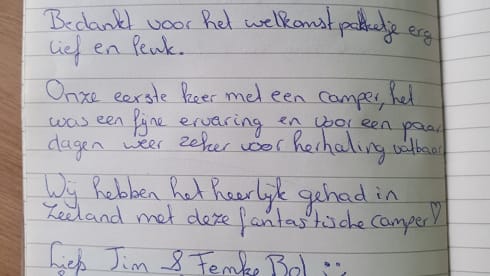 Bedankt voor het welkomstpakketje erg
lief en leuk.
Onze eerste keer met een camper, het
was een fijne ervaring en voor een paar
dagen weer zeker voor herhaling vatbaar
Wij hebben het heerlijk gehad in
Zeeland met deze fantastische camper♡
Liefs Jim & Femke Bol